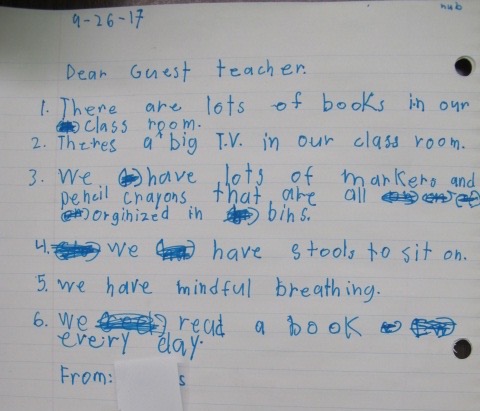 nub
9-26-17
Dear Guest teacher.
1. There are lots of books in our
class room.
2. Theres a big T.V. in our class room.
3. We have lots of markers and
pencil crayons that are all
orginized in bins.
4. We have stools to sit on.
5. We have mindful breathing.
6. We read a book
every day.
From: s